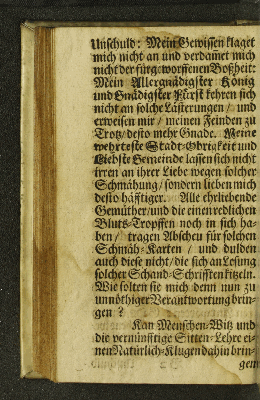 Unschuld: Mein Gewissen klaget
mich nicht an und verdam̃et mich
nicht der fürgeworffenen Boßheit:
Mein Allergnädigster König
und Gnädigster Fürst kehren sich
nicht an solche Lästerungen / und
erweisen mir / meinen Feinden zu
Trotz / desto mehr Gnade. Meine
wehrteste Stadt-Obrigkeit und
Liebste Gemeinde lassen sich nicht
irren an ihrer Liebe wegen solcher
Schmähung / sondern lieben mich
desto häfftiger. Alle ehrliebende
Gemüther / und die einen redlichen
Bluts-Tropffen noch in sich ha-
ben / tragen Abscheu für solchen
Schmäh-Karten / und dulden
auch diese nicht / die sich an Lesung
solcher Schand-Schrifften kitzeln.
Wie solten sie mich denn nun zu
unnöthiger Verantwortung brin-
gen?
Kan Menschen-Witz und
die vernünfftige Sitten-Lehre ei-
nen Natürlich-Klugen dahin brin-
gen